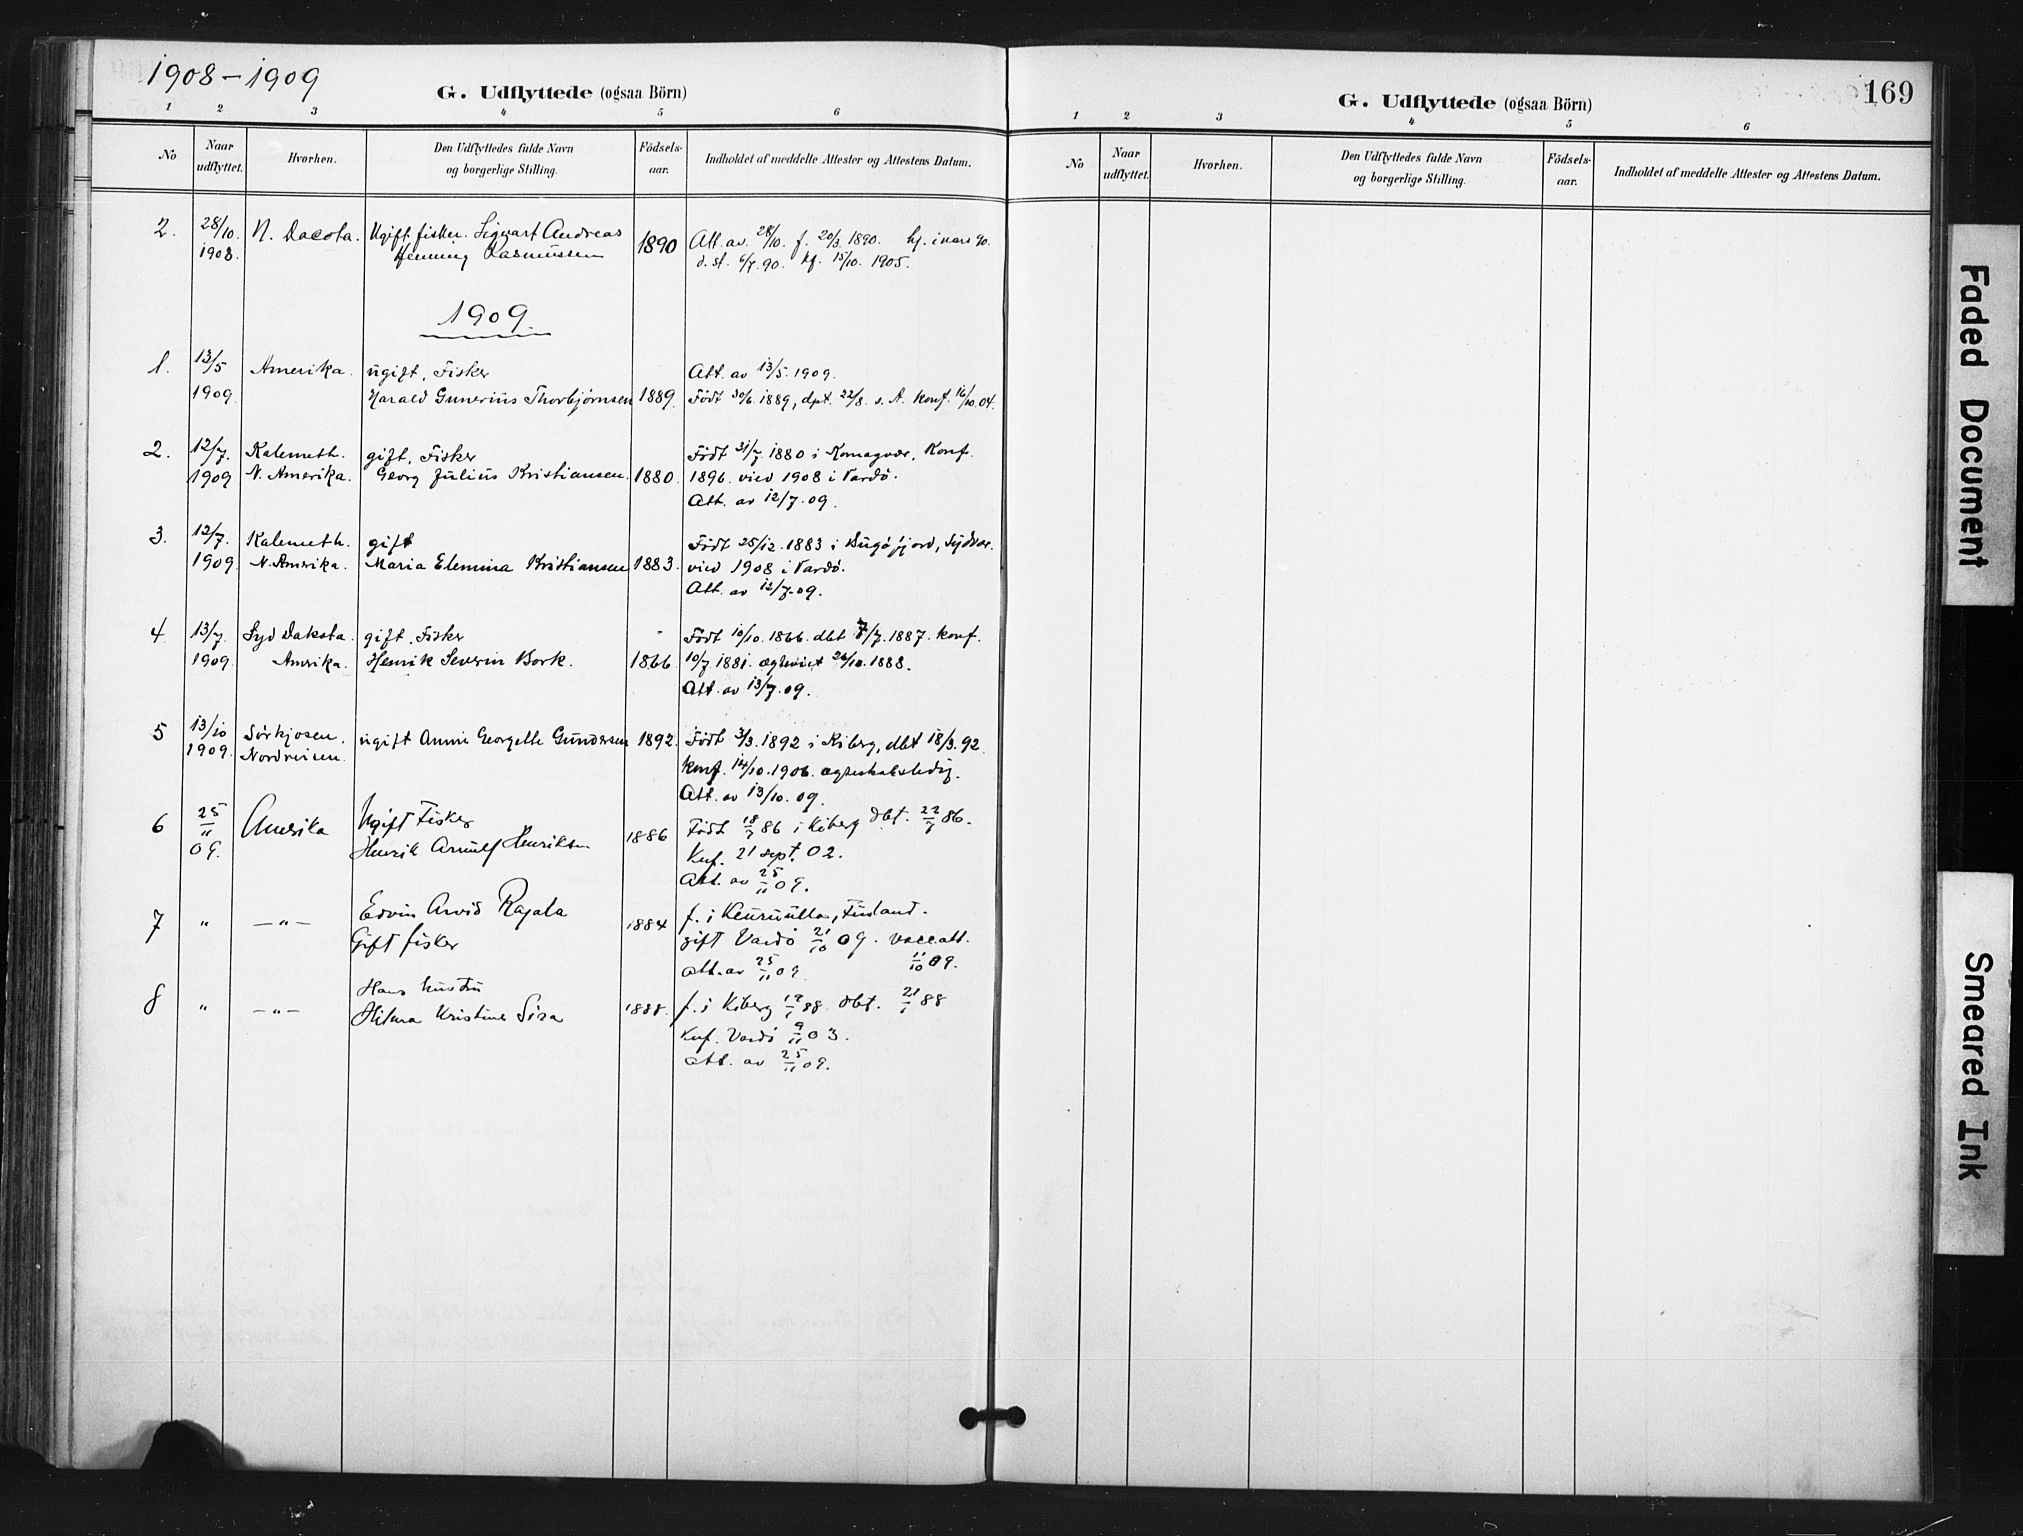 1908-1909
G. Udflyttede (ogsaa Börn)
1 2 3 4 5 6
No
Naar udflyttet.
Hvorhen.
Den Udflyttedes fulde Navn og borgerlige Stilling.
Födsels-aar.
Indholdet af meddelte Attester og Attestens Datum.
2. 28/10. N. Dacota. Ugift fisker. Sigvart Andreas 1890 Att. av. 28/10. f. 20/3. 1890. hj.
1908. Henning Rasmussen d. st. 6/7. 90. kf. 15/10. 1905.
1909
1. 13/5 Amerika. ugift, Fisker Att. av 13/5. 1909.
1909. Harald Gunerius Thorbjørnsen 1889. Født 30/6. 1889, dpt. 22/8. s. A. konf. 16/10. 04.
2. 12/7. Kalemeth. gift, Fisker Født 31/7. 1880 i Komagvær, Konf.
1909 N. Amerika. Georg Julius Kristiansen. 1880. 1896. vied 1908 i Vardö.
Att. av 12/7. 09.
3. 12/7. Kalemeth. gift Født 25/12. 1883 i Bugöfjord, Sydvar.
1909. N. Amerika. Maria Elemina Kristiansen 1883. vied 1908 i Vardö.
Att. av 12/7. 09.
4. 13/7. Syd Dakota. gift, Fisker Født 10/10. 1866. dbt 7/7. 1887. konf.
1909. Amerika. Henrik Severin Bork. 1866. 10/7. 1881. ægteviet 26/12. 1888.
Att. av 13/7. 09.
5 13/10 Sörkjosen, ugift Annie Georgette Gundersen 1892. Født 3/3. 1892 i Kiberg, dbt 18/3. 92.
1909. Nordreisen. Konf. 14/10. 1906. ægteskabsledig.
Att. av 13/10. 09.
6 25/11 Amerika Ugift Fisker 1886 Født 18/7 86 i Kiberg dbt. 22/7 86.
09. Henrik Arnulf Henriksen Knf. 21 sept. 02.
Att. av 25/11 09.
7 " —"— Edvin Arvid Rajala 1884 f. i , Finland.
Gift fisker gift Vardö 21/10 09. vaccatt.
att. av 25/11 09. 11/10 09.
8 " —"— Hans hustru
Hilma Kristine Sira 1888. f. i Kiberg 12/1 88. dbt. 21/1 88
Knf. Vardö 9/11 03.
att. av 25/11 09.
169
G. Udflyttede (ogsaa Börn)
1 2 3 4 5 6
No
Naar udflyttet.
Hvorhen.
Den Udflyttedes fulde Navn og borgerlige Stilling.
Födsels-aar.
Indholdet af meddelte Attester og Attestens Datum.
Faded Document
Smeared Ink